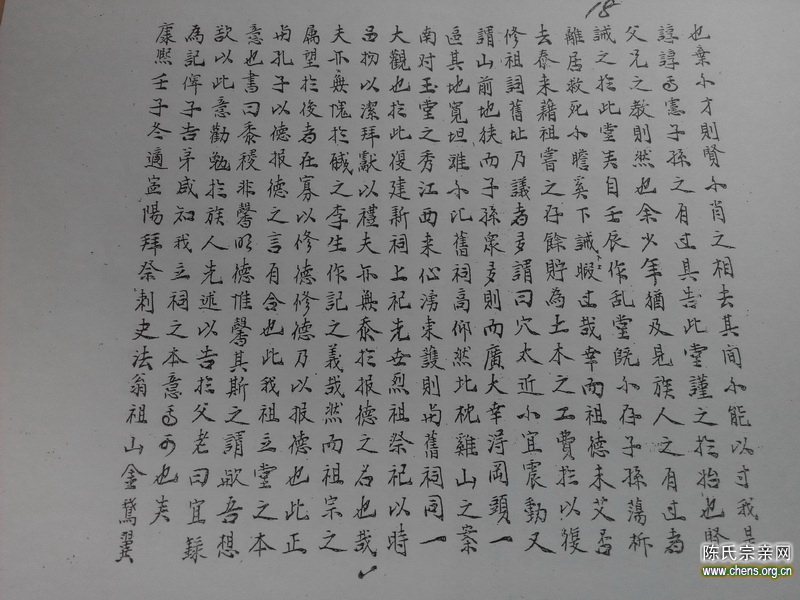 18
也棄不才則賢不肖之相去其間不能以寸我是
諄諄焉憲子孫之有过其告此堂謹之於始也賢
父兄之教則然也余少年猶及見族人之有过者
誡之於此堂矣自壬辰作乱堂既不存子孫蕩柝
離居救死不瞻奚下誠暇过哉幸而祖德未艾否
去泰来藉祖嘗之存餘貯為土木之工費於以復
修祖祠舊址乃議者多謂曰穴太近不宜震動又
謂山前地狭而子孫衆多則而廣大幸淂岡頭一
區其地寛坦雖不比舊祠高仰然北枕雞山之案
南对玉堂之秀江西来心湧束護則与舊祠同一
大觀也於此復建新祠上祀先世烈祖祭祀以時
品物以潔拜獻以禮夫亦無忝於报德之名也哉
夫亦無愧於碱之李生作記之義哉然而祖宗之
属望於後者在寡以修德修德乃以报德也此正
与孔子以德报德之言有合也此我祖立堂之本
意也書曰黍稷非馨明德惟馨其斯之謂歟吾想
欲以此意勸勉於族人先述以告於父老曰宜録
為記俾子告弟咸知我立祠之本意焉可也矣
康熙壬子冬適宣陽拜祭刺史法翁祖山金鵞翼
陈氏宗亲网
www.chens.org.cn